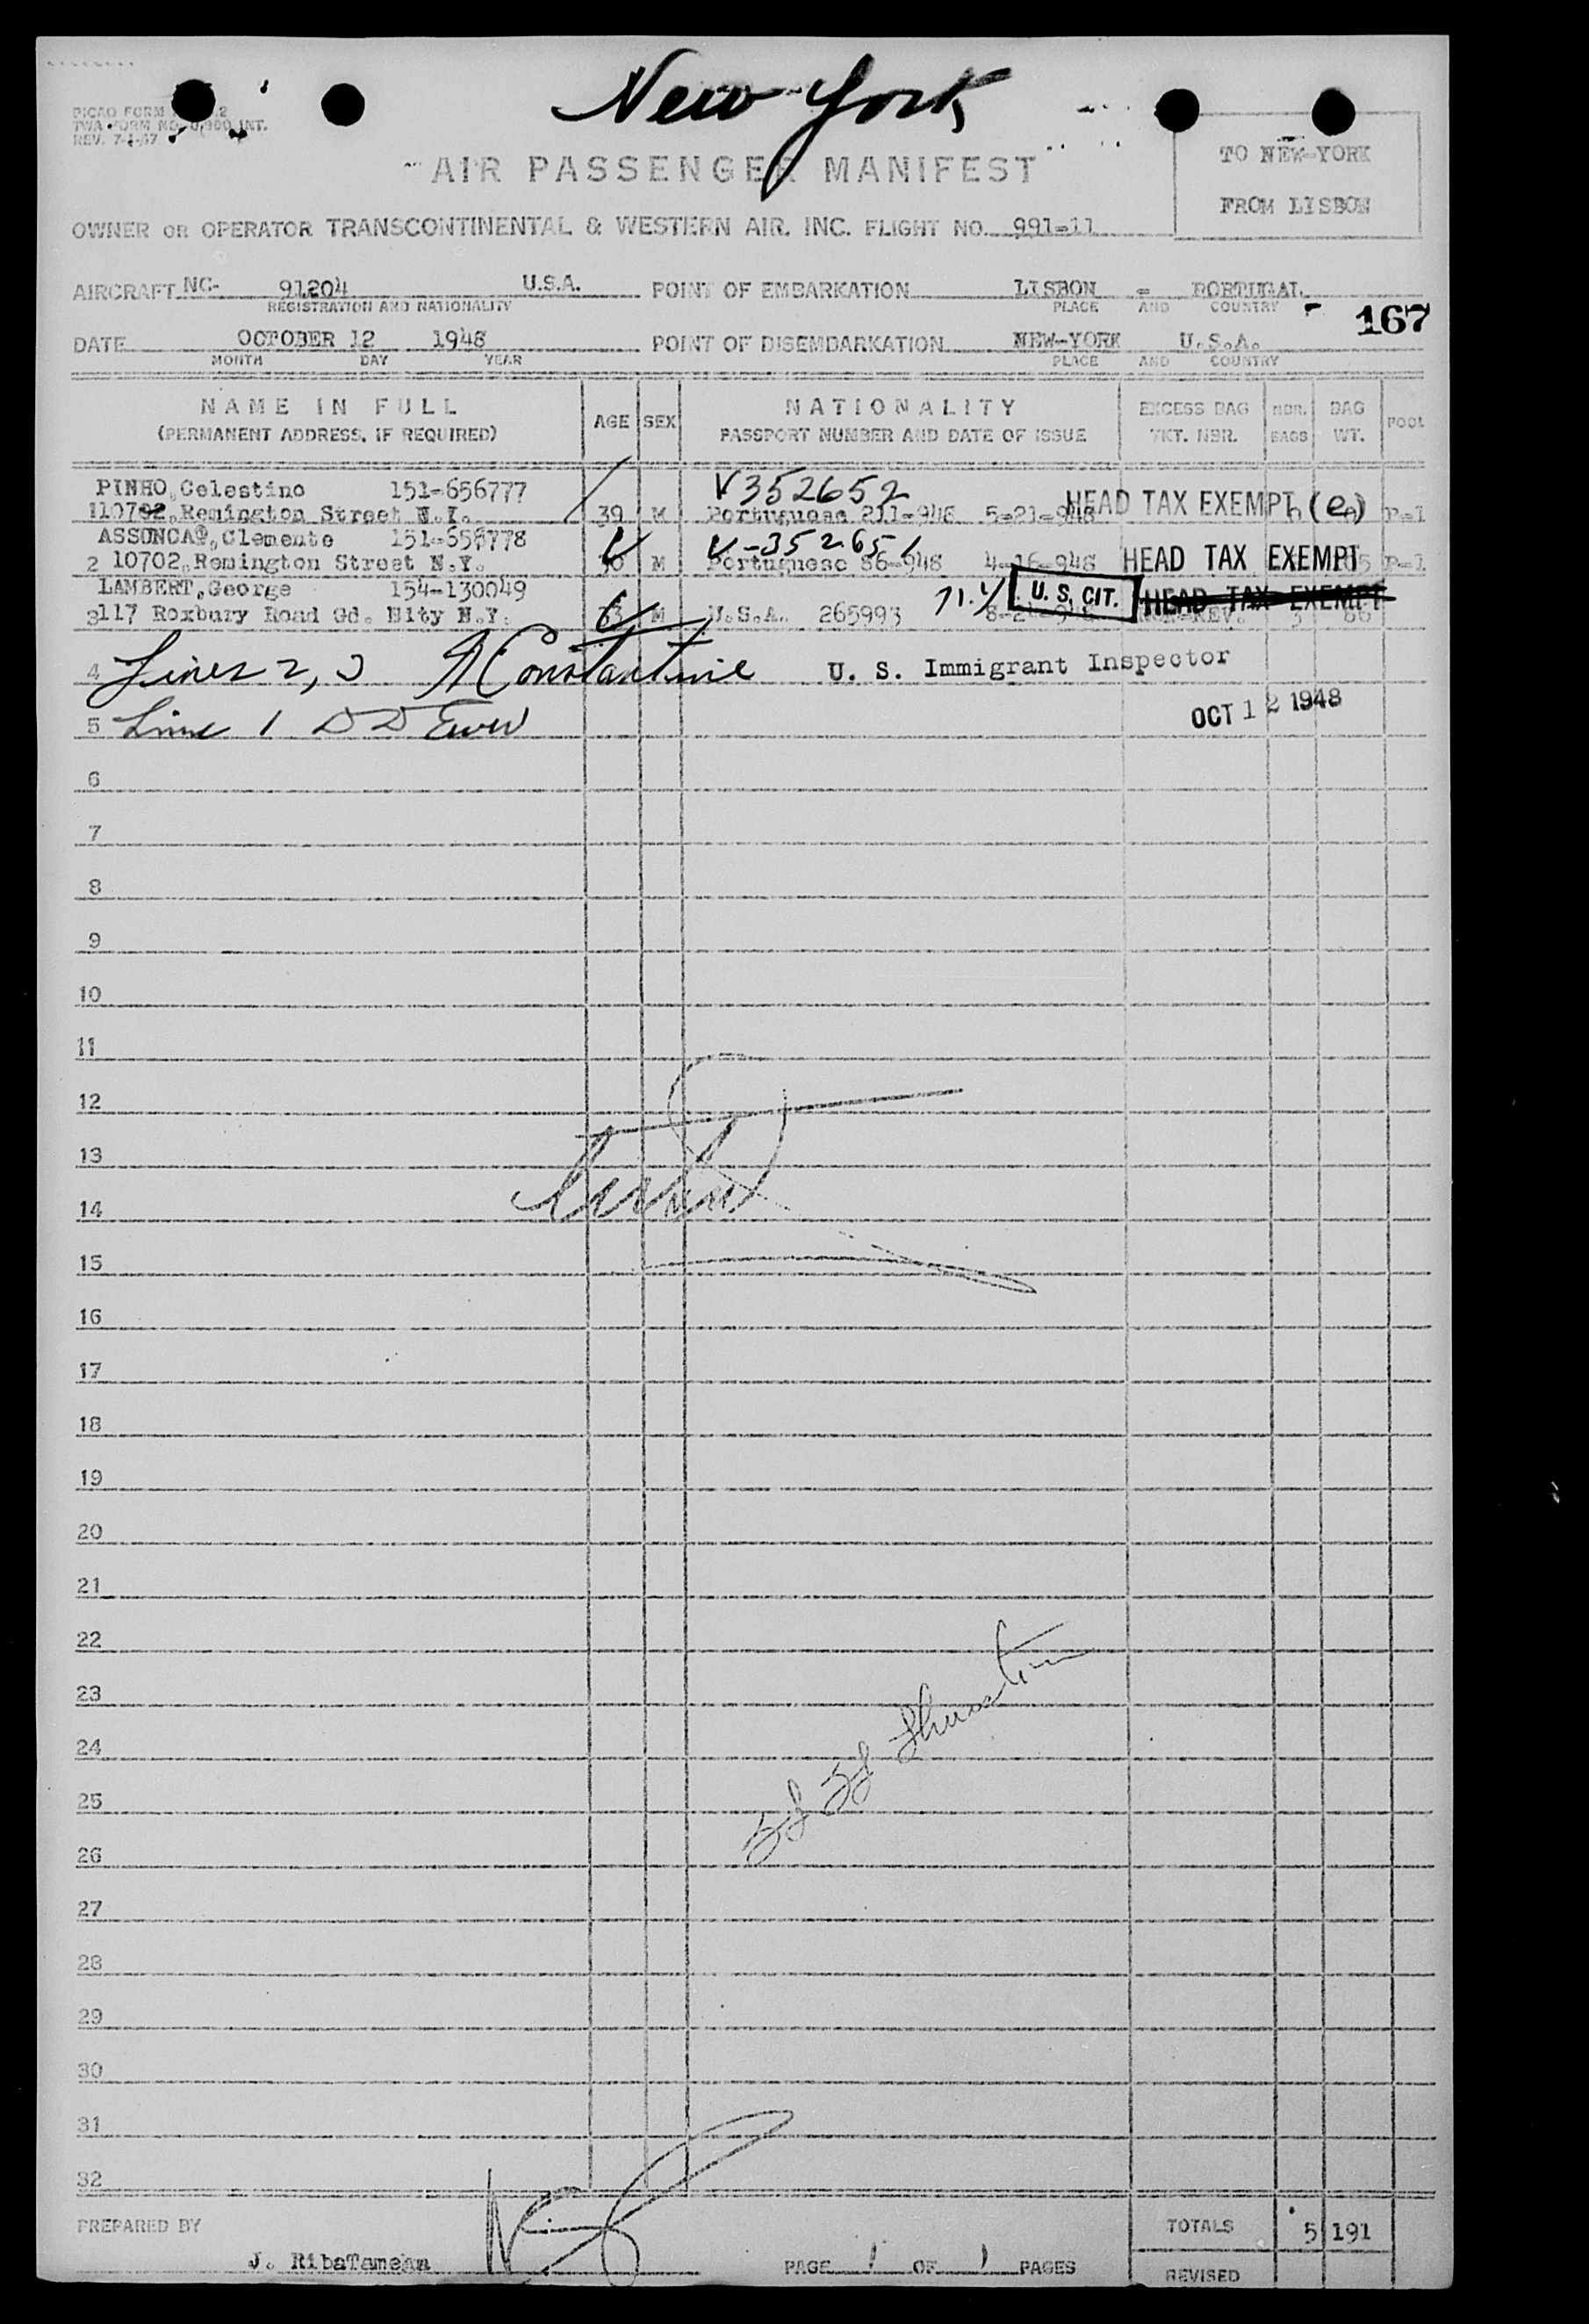 New York
REV. 7-1-47
AIR PASSENGER MANIFEST
TO NEW-YORK
FROM LISBON
OWNER OR OPERATOR TRANSCONTINENTAL & WESTERN AIR. INC. FLIGHT NO. 991-11
AIRCRAFT NC- 91204 U.S.A. POINT OF EMBARKATION LISBON - PORTUGAL
REGISTRATION AND NATIONALITY PLACE AND COUNTRY
167
DATE OCTOBER 12 1948 POINT OF DISEMBARKATION NEW-YORK U.S.A.
MONTH DAY YEAR PLACE AND COUNTRY
NAME IN FULL AGE SEX NATIONALITY EXCESS BAG NBR. BAG POOL
(PERMANENT ADDRESS, IF REQUIRED) PASSPORT NUMBER AND DATE OF ISSUE TKT. NBR. BAGS WT.
PINHO,Celestino 151-656777 V352652
Remington Street 39 M Portuguese 211-948 5-21-948 HEAD TAX EXEMPT (e) P-1
ASSUNCAO,Clemente 151-656778 V-352651
2 10702,Remington Street N.Y. M Portuguese 86-948 4-16-948 HEAD TAX EXEMPT P-1
LAMBERT,George 154-130049 U.S. CIT. HEAD TAX EXEMPT
3 117 Roxbury Road Gd. N.Y. M U.S.A. 265993
4 Lines 2, 3 A Constantine U. S. Immigrant Inspector
OCT 12 1948
5 Line 1 D D
6
7
8
9
10
11
12
13
14
15
16
17
18
19
20
21
22
23
24
25
26
27
28
29
30
31
32
PREPARED BY TOTALS 5 191
J. PAGE 1 OF 1 PAGES
REVISED